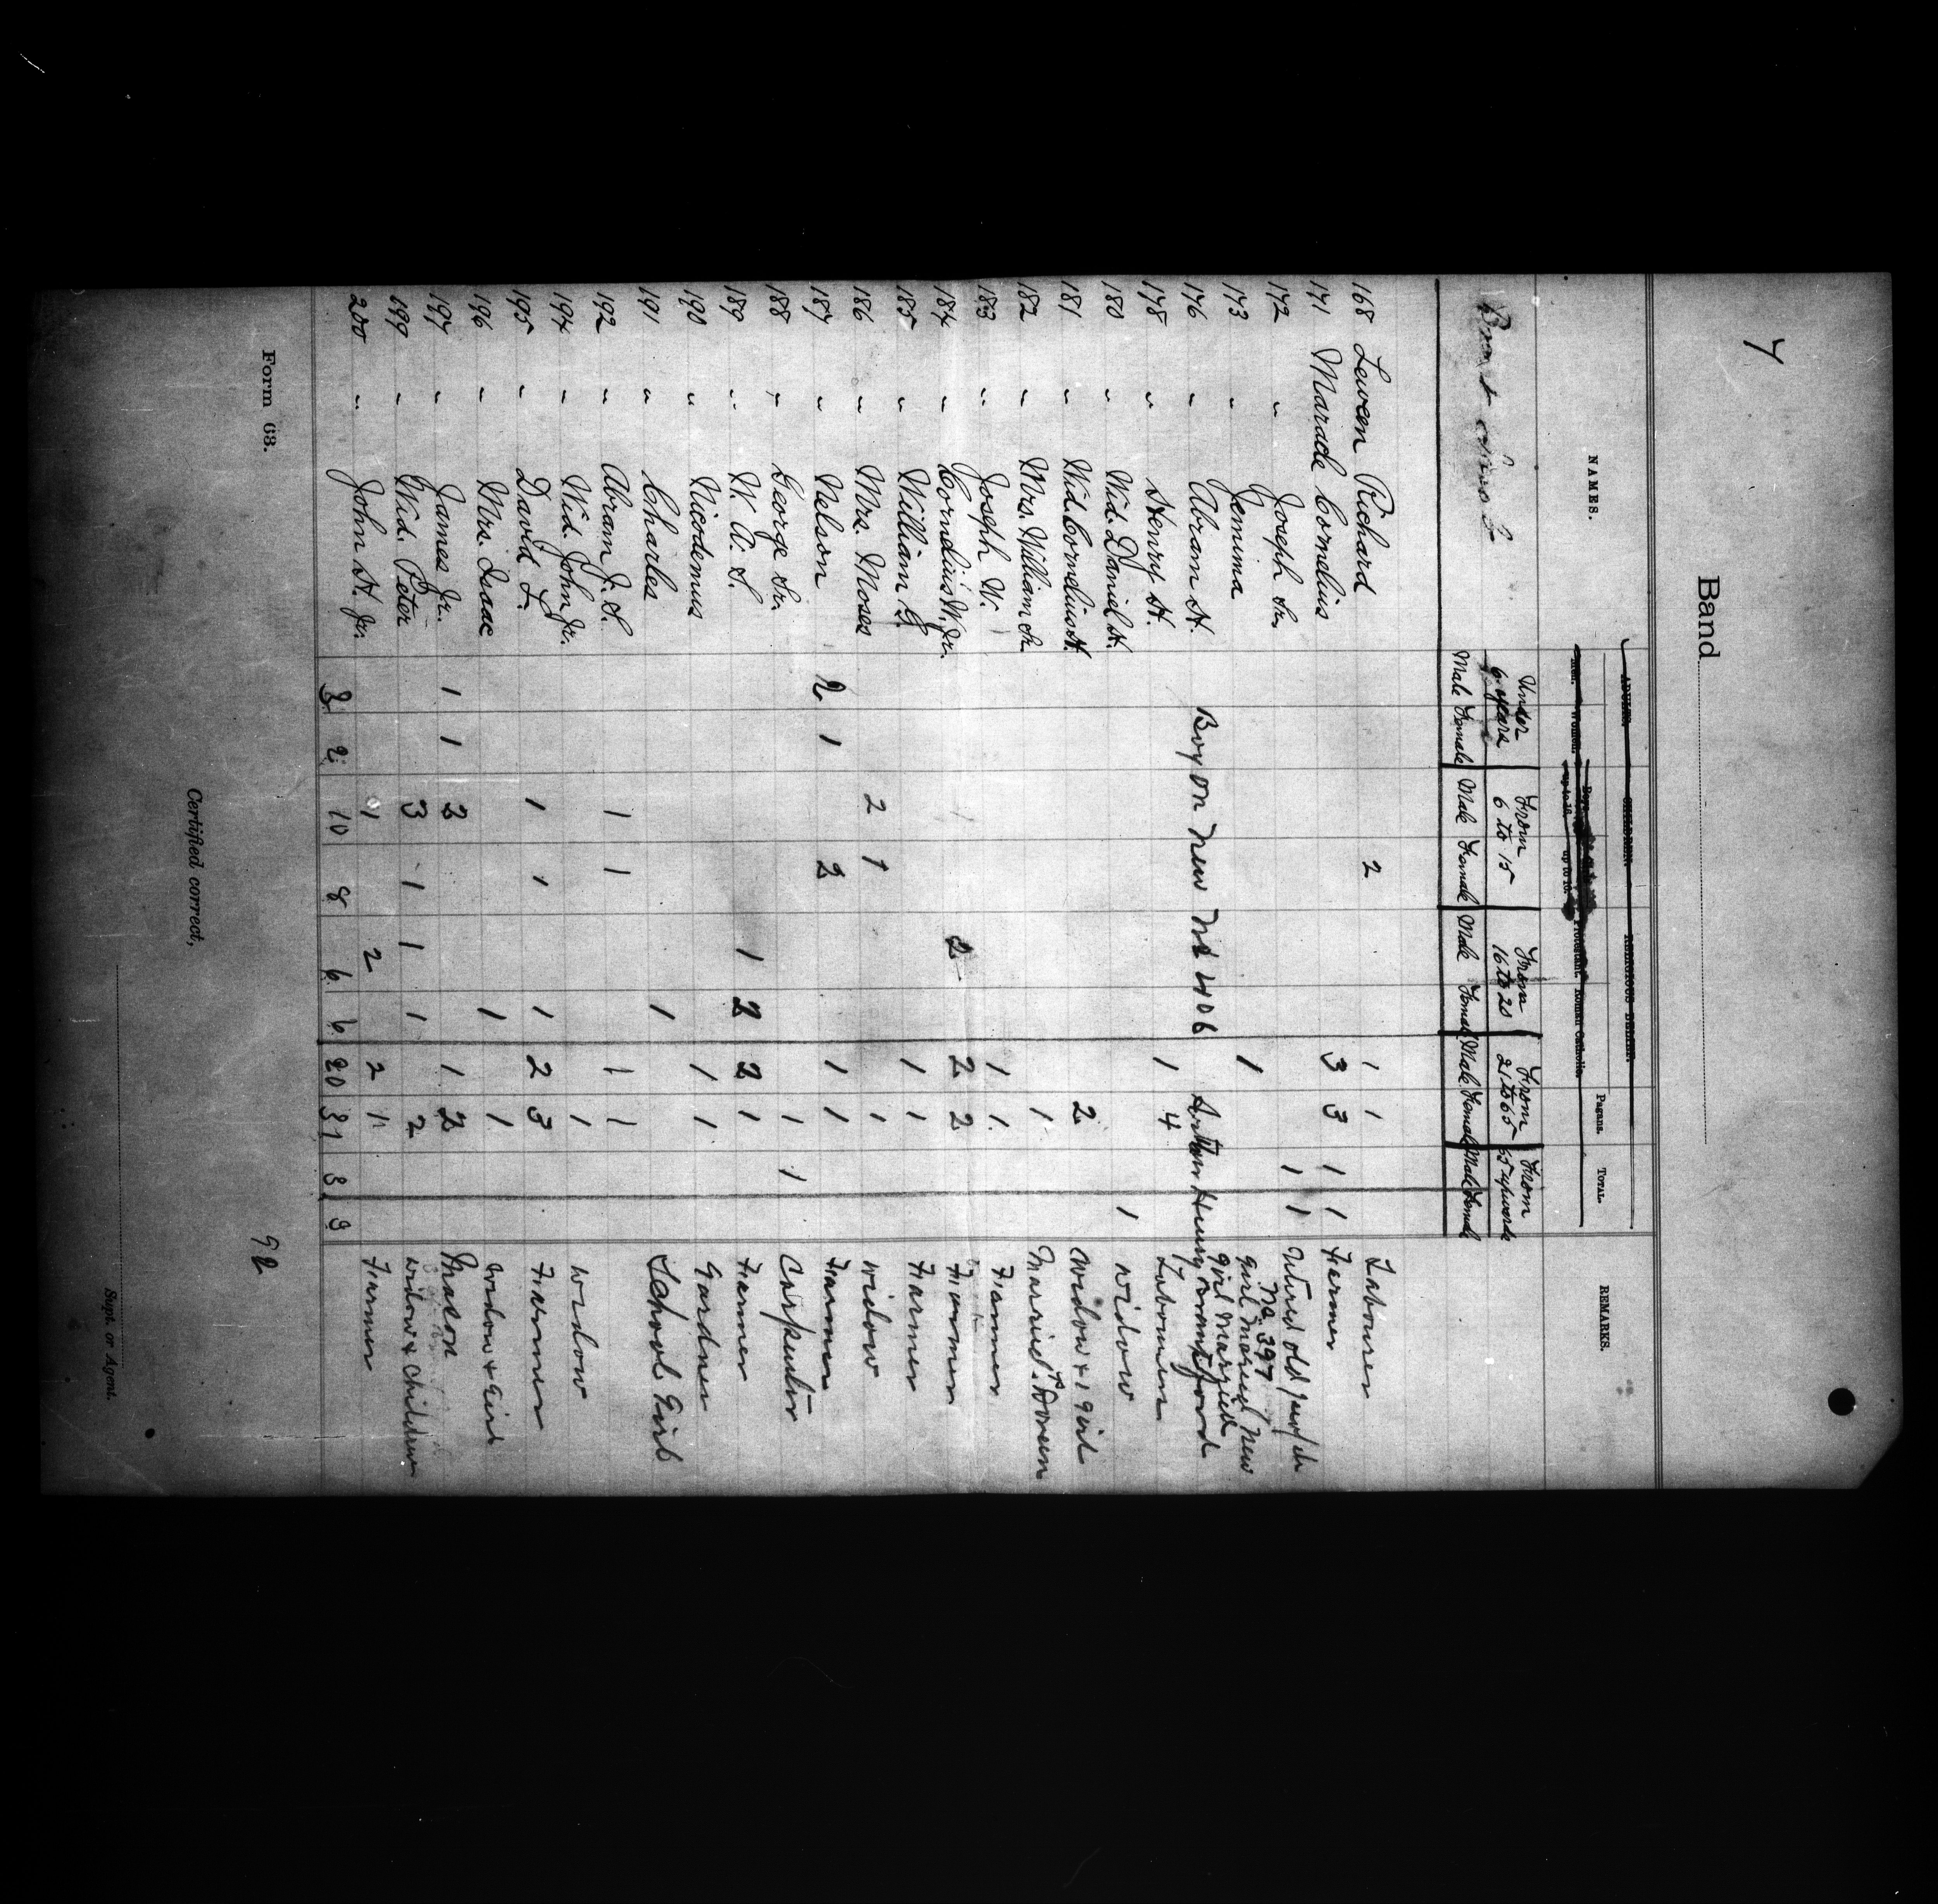 7
Band
NAMES.
ADULTS. CHILDREN. RELIGIOUS BELIEF.
Men. Women. Boys up to 16. up to 16. Protestant. Roman Catholic. Pagans. TOTAL. REMARKS.
Under 6 years From 6 to 15 From 16 to 20 From 21 to 65 From 65 upwards
Male Female Male Female Male Female Male Female Male Female
168 Leween Richard 2 1 1 Labourer
171 Maracle Cornelius 3 3 1 1 Farmer
172 " Joseph Sr. 1 1 old
No. 397
173 " Jemima 1 girl married new
girl married
176 " Abram H. Boy on new No 406 Brantford
178 " Henry H. 1 4 Labourer
180 " Wid. Daniel H. 1 widow
181 " Wid. Cornelius H. 2 widow & 1 girl
182 " Mrs. William Sr. 1 married
183 " Joseph W. 1 1 Farmer
184 " Cornelius W. Jr. 2 2 2 Farmer
185 " William G. 1 1 Farmer
186 " Mrs. Moses 2 1 1 widow
187 " Nelson 2 1 2 1 1 Farmer
188 " George Sr. 1 1 Carpenter
189 " W. A. S. 1 2 2 1 Farmer
190 " Nicodemus 1 1 Gardner
191 " Charles 1 School Girl
192 " Abram J. S. 1 1 1 1
194 " Wid. John Jr. 1 widow
195 " David L. 1 1 1 2 3 Farmer
196 " Mrs. Isaac 1 1 widow & Girl
197 " James Jr. 1 1 2 1 2 Mason
199 " Wid. Peter 3 1 1 1 2 widow & children
200 " John H. Jr. 1 2 2 1 Farmer
3 2 10 8 6 6 20 31 3 3
92
Form 68.
Certified correct,
Supt. or Agent.